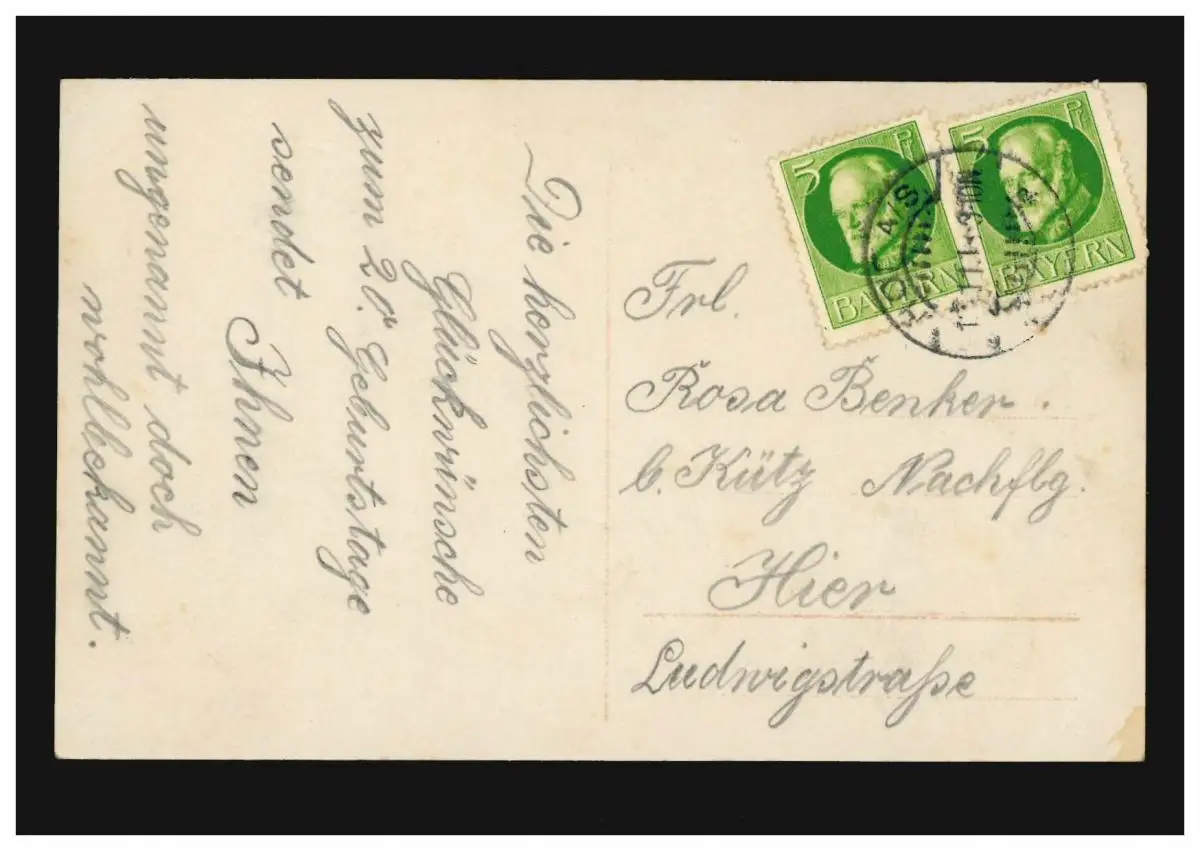 Die herzlichsten
Glückwünsche
zum 20. Geburtstage
sendet
Ihnen
ungenannt doch
wohlbekannt.
5 Pf
BAYERN
5 Pf
BAYERN
Frl.
Rosa Benker.
b. Kütz Nachflg.
Hier
Ludwigstraße